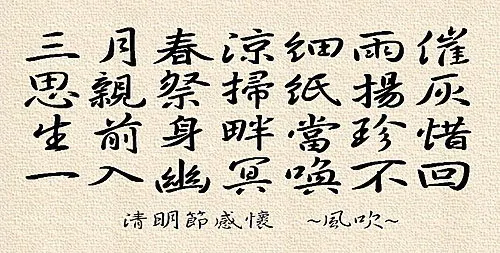 三月春涼細雨催
思親祭掃紙揚灰
生前身畔當珍惜
一入幽冥喚不回
清明節感懷 ~風吹~